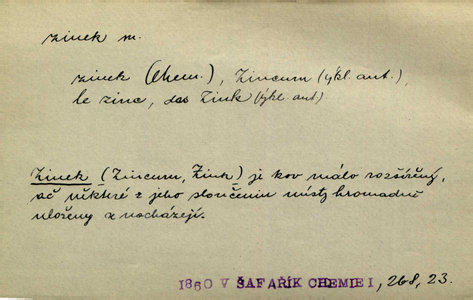 zinek m.
zinek (Chem.), Zincum (výkl. aut.),
le zinc, das Zink (výkl. aut.)
Zinek (Zincum, Zink) je kov málo rozšířený,
ač některé z jeho sloučenin místy hromadně
uloženy a nacházejí.
1860 V ŠAFAŘÍK CHEMIE I, 268, 23.